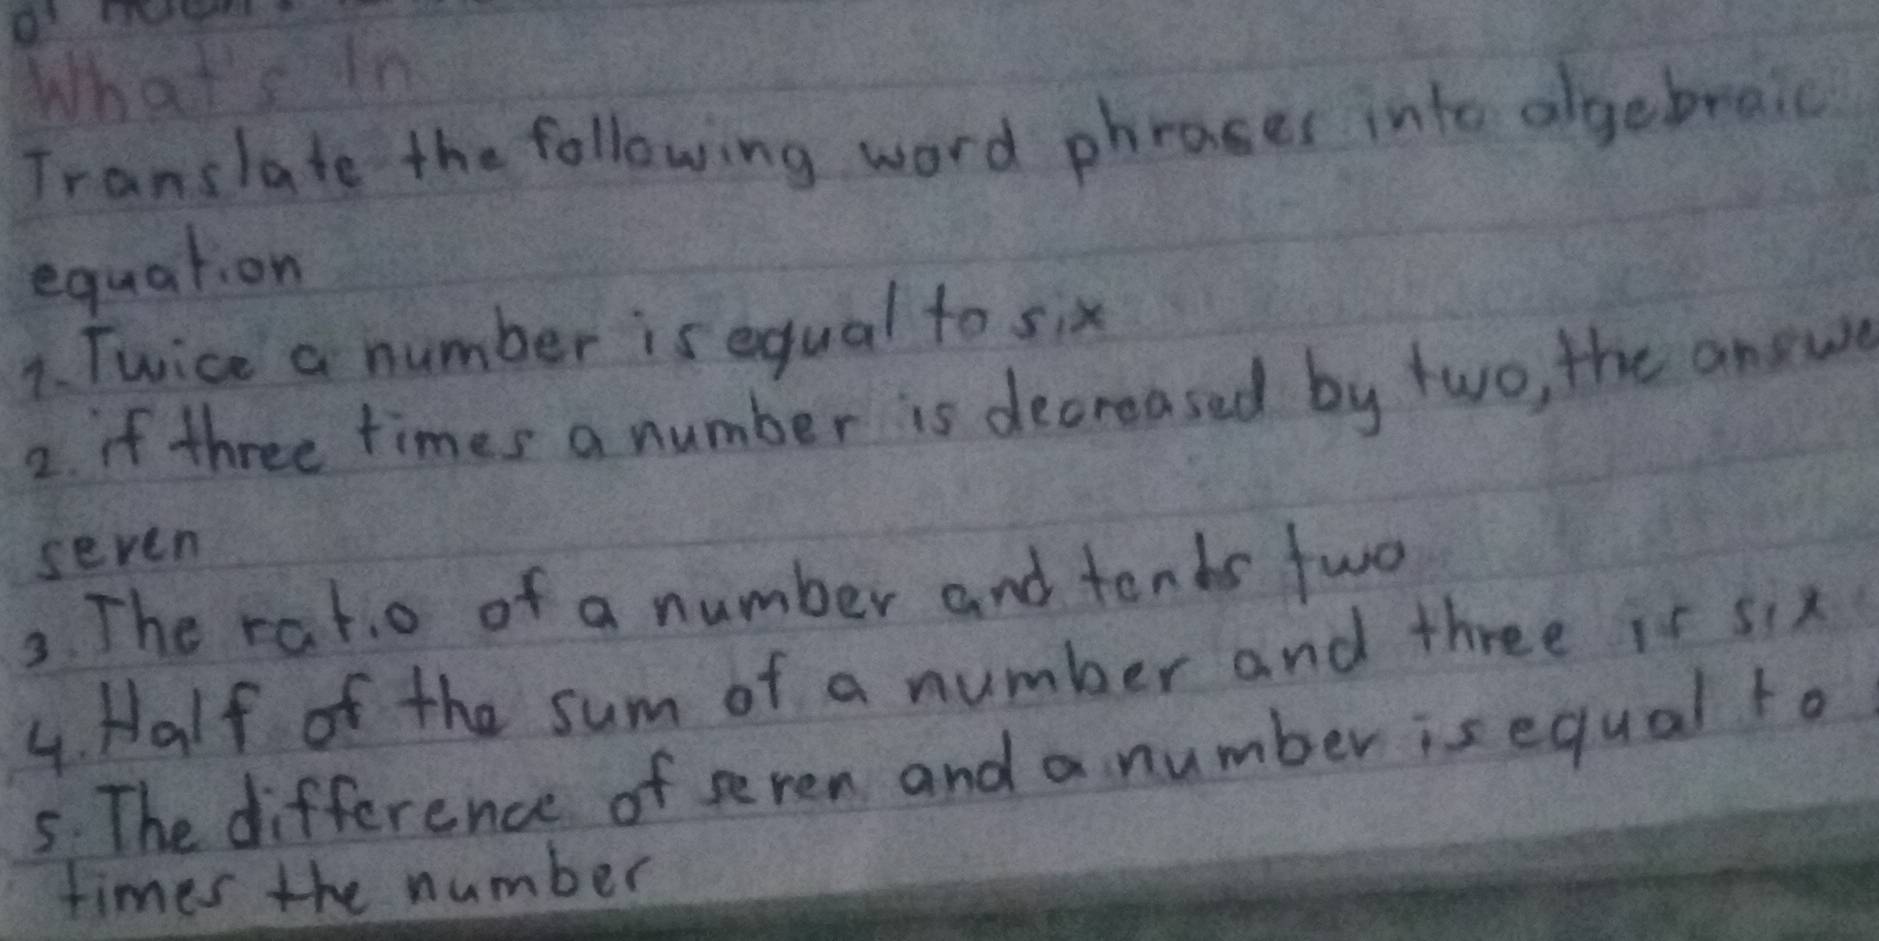 What's In
Translate the following word phrases into algebraic
equation
1. Twice a number is equal to six
2. if three times a number is decreased by two, the answe
seven
3. The ratio of a number and
two
4. Half of the sum of a number and three is six
5. The difference of seven and a number is equal to
times the number